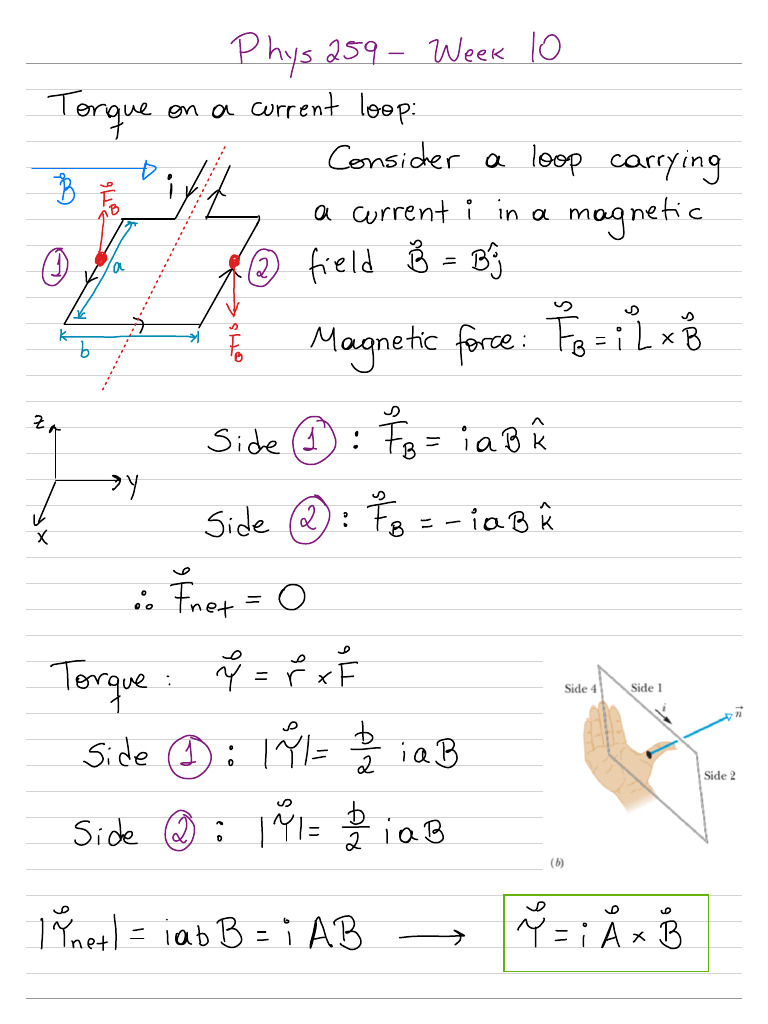 Phys 259 – Week 10
Torque on a current loop:
B⃗
F⃗_B
i
① a ②
b
F⃗_B
Consider a loop carrying
a current i in a magnetic
field B⃗ = Bĵ
Magnetic force: F⃗_B = i L⃗ × B⃗
z
y
x
Side ① : F⃗_B = iaB k̂
Side ② : F⃗_B = -iaB k̂
∴ F⃗net = 0
Torque : τ⃗ = r⃗ × F⃗
Side ① : |τ⃗| = b/2 iaB
Side ② : |τ⃗| = b/2 iaB
Side 4 Side 1
i
n⃗
Side 2
(b)
|τ⃗net| = iabB = iAB → τ⃗ = i A⃗ × B⃗